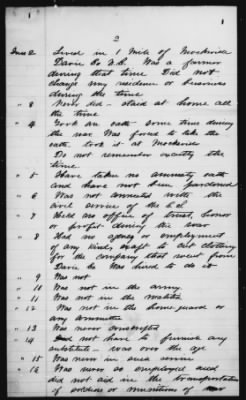 1
2
Ques 2 Lived in 1 Mile of Mocksville
Davie Co N.C. Was a farmer
during that time Did not
change my residence or business
during the time
" 3 Never did - staid at home all
the time
" 4 Took an oath some time during
the war. Was forced to take the
oath, took it at Mocksville
Do not remember exactly the
time
" 5 Have taken no amnesty oath
and have not been pardoned
" 6 Was not connected with the
civil service of the C.S.
" 7 Held no office of trust, honor
or profit during the war
" 8 Had no agency or employment
of any kind, except to cut clothing
for the company that went from
Davie Co Was hired to do it
" 9 Was not
" 10 Was not in the army
" 11 Was not in the militia
" 12 Was not in the home guard or
any committee
" 13 Was never conscripted
" 14 Did not have to furnish any
substitute - was over the age
" 15 Was never in such service
" 16 Was never so employed and
did not aid in the transportation
of soldiers or munitions of war